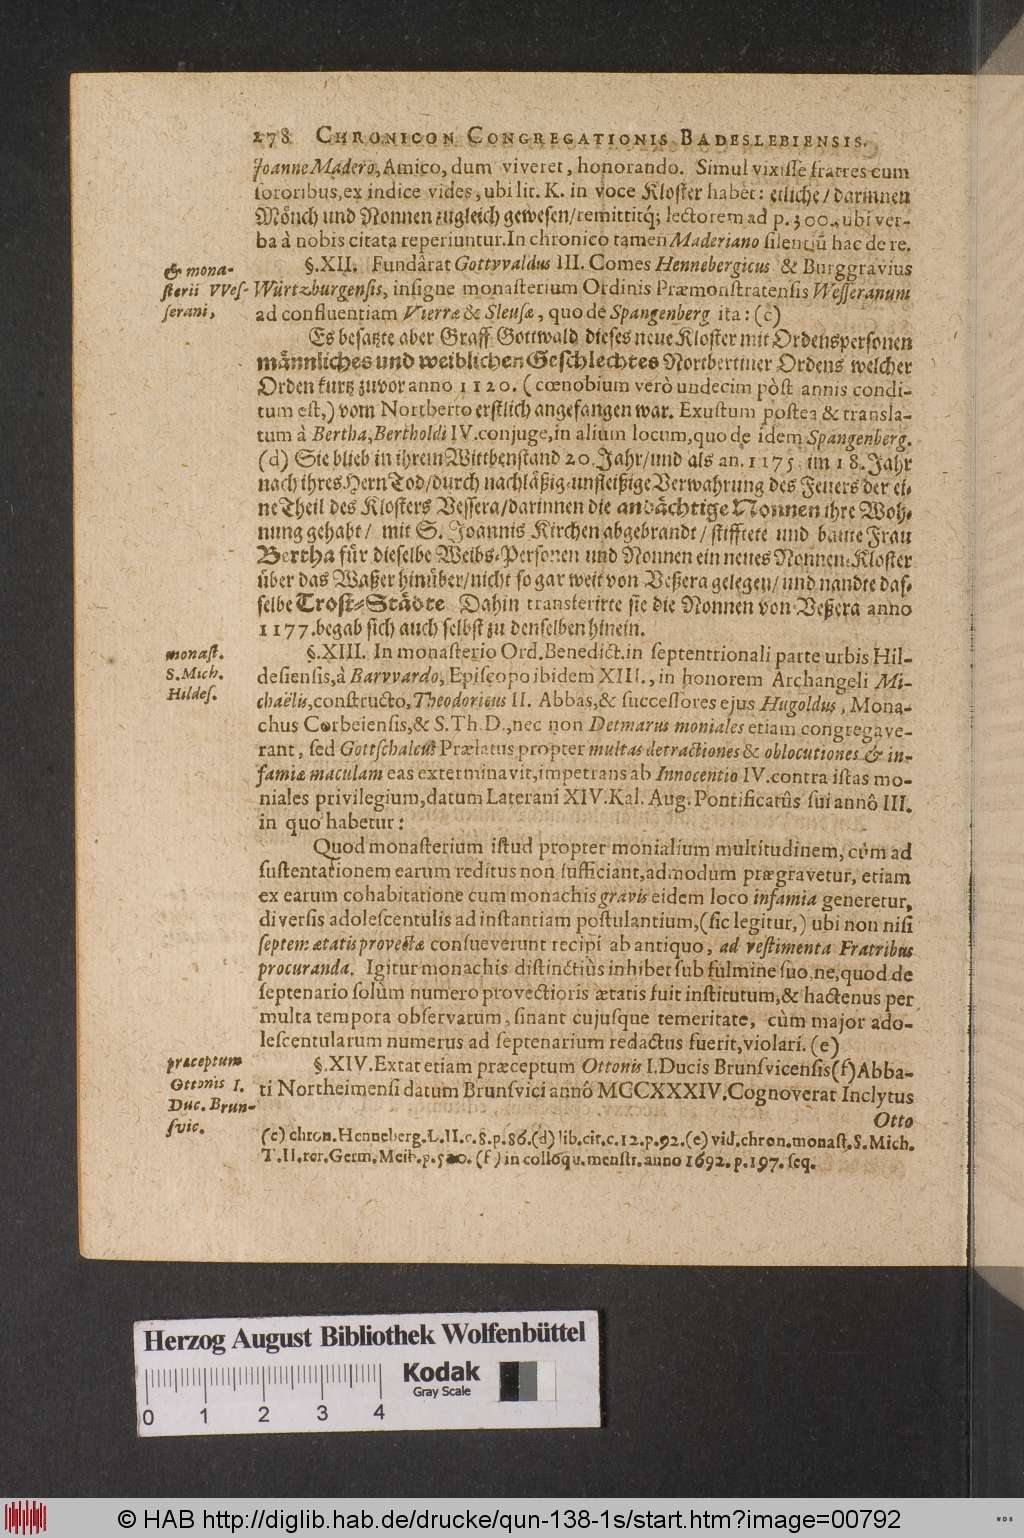 278 CHRONICON CONGREGATIONIS BADESLEBIENSIS.
Joanne Madero, Amico, dum viveret, honorando. Simul vixisse fratres cum
sororibus, ex indice vides, ubi lit. K. in voce Kloster habet: etliche/ darinnen
Mönch und Nonnen zugleich gewesen/ remittitq; lectorem ad p. 300., ubi ver-
ba à nobis citata reperiuntur. In chronico tamen Maderiano silentiũ hac de re.
& mona-
sterii VVes-
serani,
§. XII. Fundârat Gottvvaldus III. Comes Hennebergicus & Burggravius
Würtzburgensis, insigne monasterium Ordinis Præmonstratensis Wesseranum
ad confluentiam Vierræ & Sleusæ, quo de Spangenberg ita: (c)
Es besatzte aber Graff Gottwald dieses neue Kloster mit Ordenspersonen
männliches und weiblichen Geschlechtes Nortbertiner Ordens welcher
Orden kurtz zuvor anno 1120. (cœnobium verò undecim pòst annis condi-
tum est,) vom Northerto erstlich angefangen war. Exustum postea & transla-
tum à Bertha, Bertholdi IV. conjuge, in alium locum, quo de idem Spangenberg.
(d) Sie blieb in ihrem Wittbenstand 20. Jahr/ und als an. 1175 im 18. Jahr
nach ihres Hern Tod/ durch nachläßig-unfleißige Verwahrung des Feuers der ei-
ne Theil des Klosters Vessera/ darinnen die andächtige Nonnen ihre Woh-
nung gehabt/ mit S. Joannis Kirchen abgebrandt/ stifftete und baute Frau
Bertha für dieselbe Weibs-Personen und Nonnen ein neues Nonnen-Kloster
über das Waßer hinüber/ nicht so gar weit von Veßera gelegen/ und nandte das-
selbe Trost-Städte Dahin transferirte sie die Nonnen von Veßera anno
1177. begab sich auch selbst zu denselben hinein.
monast.
S. Mich.
Hildes.
§. XIII. In monasterio Ord. Benedict. in septentrionali parte urbis Hil-
desiensis, à Barvvardo, Episcopo ibidem XIII., in honorem Archangeli Mi-
chaëlis, constructo, Theodoricus II. Abbas, & successores ejus Hugoldus, Mona-
chus Corbeiensis, & S. Th. D., nec non Detmarus moniales etiam congregave-
rant, sed Gottschalcus Prælatus propter multas detractiones & oblocutiones & in-
famiæ maculam eas exterminavit, impetrans ab Innocentio IV. contra istas mo-
niales privilegium, datum Laterani XIV. Kal. Aug. Pontificatûs sui annô III.
in quo habetur:
Quod monasterium istud propter monialium multitudinem, cùm ad
sustentationem earum reditus non sufficiant, admodum prægravetur, etiam
ex earum cohabitatione cum monachis gravis eidem loco infamia generetur,
diversis adolescentulis ad instantiam postulantium, (sic legitur,) ubi non nisi
septem ætatis provectæ consueverunt recipi ab antiquo, ad vestimenta Fratribus
procuranda. Igitur monachis distinctiùs inhibet sub fulmine suo, ne, quod de
septenario solùm numero provectioris ætatis fuit institutum, & hactenus per
multa tempora observatum, sinant cujusque temeritate, cùm major ado-
lescentularum numerus ad septenarium redactus fuerit, violari. (e)
præceptum
Ottonis I.
Duc. Brun-
svic.
§. XIV. Extat etiam præceptum Ottonis I. Ducis Brunsvicensis (f) Abba-
ti Northeimensi datum Brunsvici annô MCCXXXIV. Cognoverat Inclytus
Otto
(c) chron. Henneberg. L. II. c. 8. p. 86. (d) lib. cit. c. 12. p. 92. (e) vid. chron. monast. S. Mich.
T. II. rer. Germ. Meib. p. 520. (f) in colloqu. menstr. anno 1692. p. 197. seq.
Herzog August Bibliothek Wolfenbüttel
Kodak
Gray Scale
0 1 2 3 4
© HAB http://diglib.hab.de/drucke/qun-138-1s/start.htm?image=00792